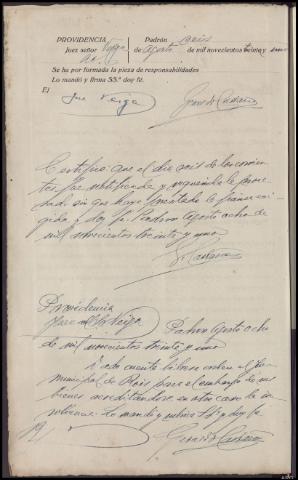 PROVIDENCIA Padrón seis
Juez señor Veiga de Agosto de mil novecientos treinta y uno
Se ha por formada la pieza de responsabilidades
Lo mandó y firma SSª doy fé.
El
José Veiga Gerardo
Certifico que el dia seis de los corrien
tes fue notificada y requerido le proce
sado sin que haya prestado la fianza exi
gida y doy fé Padron Agosto ocho de
mil novecientos treinta y uno
Providencia
Juez Sr Veiga Padron Agosto ocho
de mil novecientos treinta y uno
Dado cuenta líbrese orden al Juz
municipal de Rois para el embargo de sus
bienes acreditandose en otro caso la in
solvencia. Lo mandó y rubrica SSª y doy fe
Gerardo